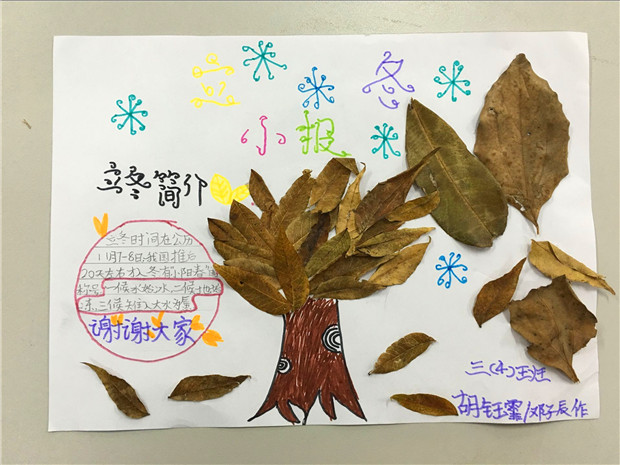 立冬
小报
立冬简介
立冬时间在公历
11月7-8日,我国推后
20天左右入冬有小阳春
称号一候水始冰,二候地始
冻,三候雉入大水为蜃
谢谢大家
三(4)班
胡钰霏/邓子辰作